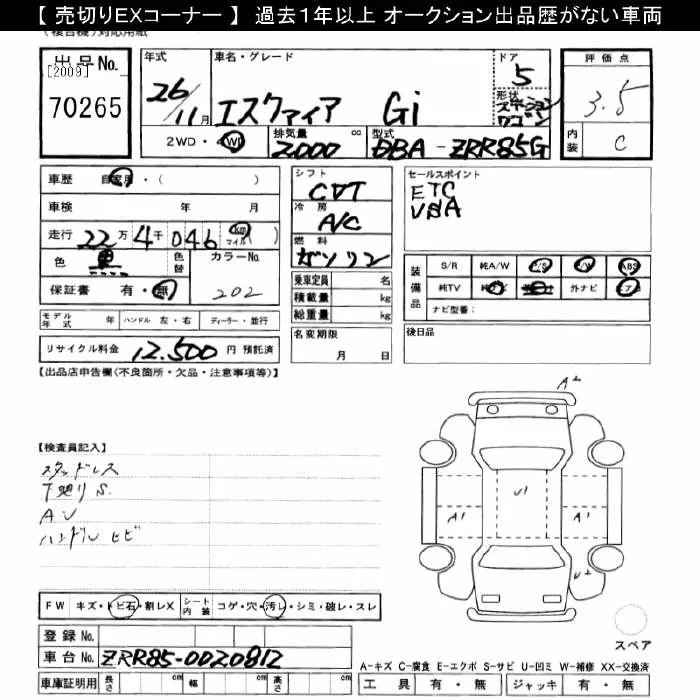 【 売切りEXコーナー 】 過去１年以上 オークション出品歴がない車両
(複合機)対応用紙
出品No.
[2009]
70265
年式
26/11月
車名・グレード
エスクァイア Gi
ドア
5
形状
ステーションワゴン
評価点
3.5
内装
C
2WD・4WD
排気量
2000
cc
型式
DBA-ZRR85G
車歴 自家用・( )
車検 年 月
走行 22万4千046 km マイル ( )
色 黒
色替
カラーNo.
202
保証書 有・無
モデル年式 年
ハンドル 左・右
ディーラー・並行
リサイクル料金 12,500 円 預託済
シフト
CVT
冷房
A/C
燃料
ガソリン
乗車定員 名
積載量 kg
総重量 kg
名変期限
月 日
セールスポイント
ETC
装備品
S/R 純A/W P/S P/W ABS
純TV 外ナビ エアB
ナビ型番:
後日品
【出品店申告欄(不良箇所・欠品・注意事項等)】
【検査員記入】
スタッドレス
下廻りS.
AU
ハンドルヒビ
A2
U1
A1
A1
U2
スペア
FW キズ・トビ石・割レX
シート内装 コゲ・穴・汚レ・シミ・破レ・スレ
登録No.
車台No. ZRR85-0020812
車庫証明用 長さ cm 幅 cm 高さ cm
A-キズ C-腐食 E-エクボ S-サビ U-凹ミ W-補修 XX-交換済
工具 有・無 ジャッキ 有・無